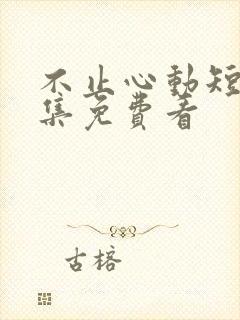 不止心動短
集免費看
古榕